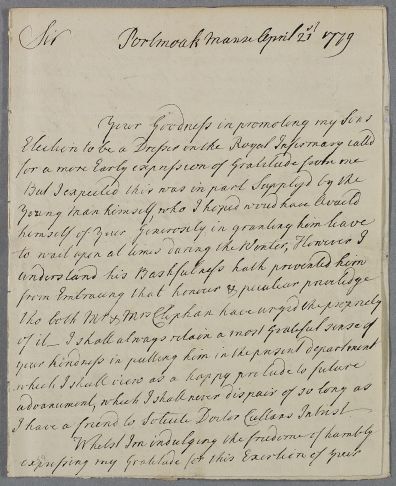 Sir Portmoak Manse April 21st 1779
Your Goodness in promoting my Sons
Election to be a Dresser in the Royal Infirmary called
for a more Early expression of Gratitude from me
But I expected this was in part Supplyd by the
Young man himself who I hoped woud have Availd
himself of Your Generosity in granting him leave
to wait upon at times during the Winter, However I
understand his Bashfulness hath prevented him
from Embracing that honour & peculiar priviledge
tho both Mr & Mrs Clephan have urged the propriety
of it — I shall always retain a most Grateful sense of
your kindness in putting him in the present department
which I shall view as a happy prelude to future
advancment, which I shall never dispair of so long as
I have a friend to Solicite Doctor Cullans Intrest
Whilst Im indulging the freedome of humbly
expressing my Gratitude for this Exertion of Your